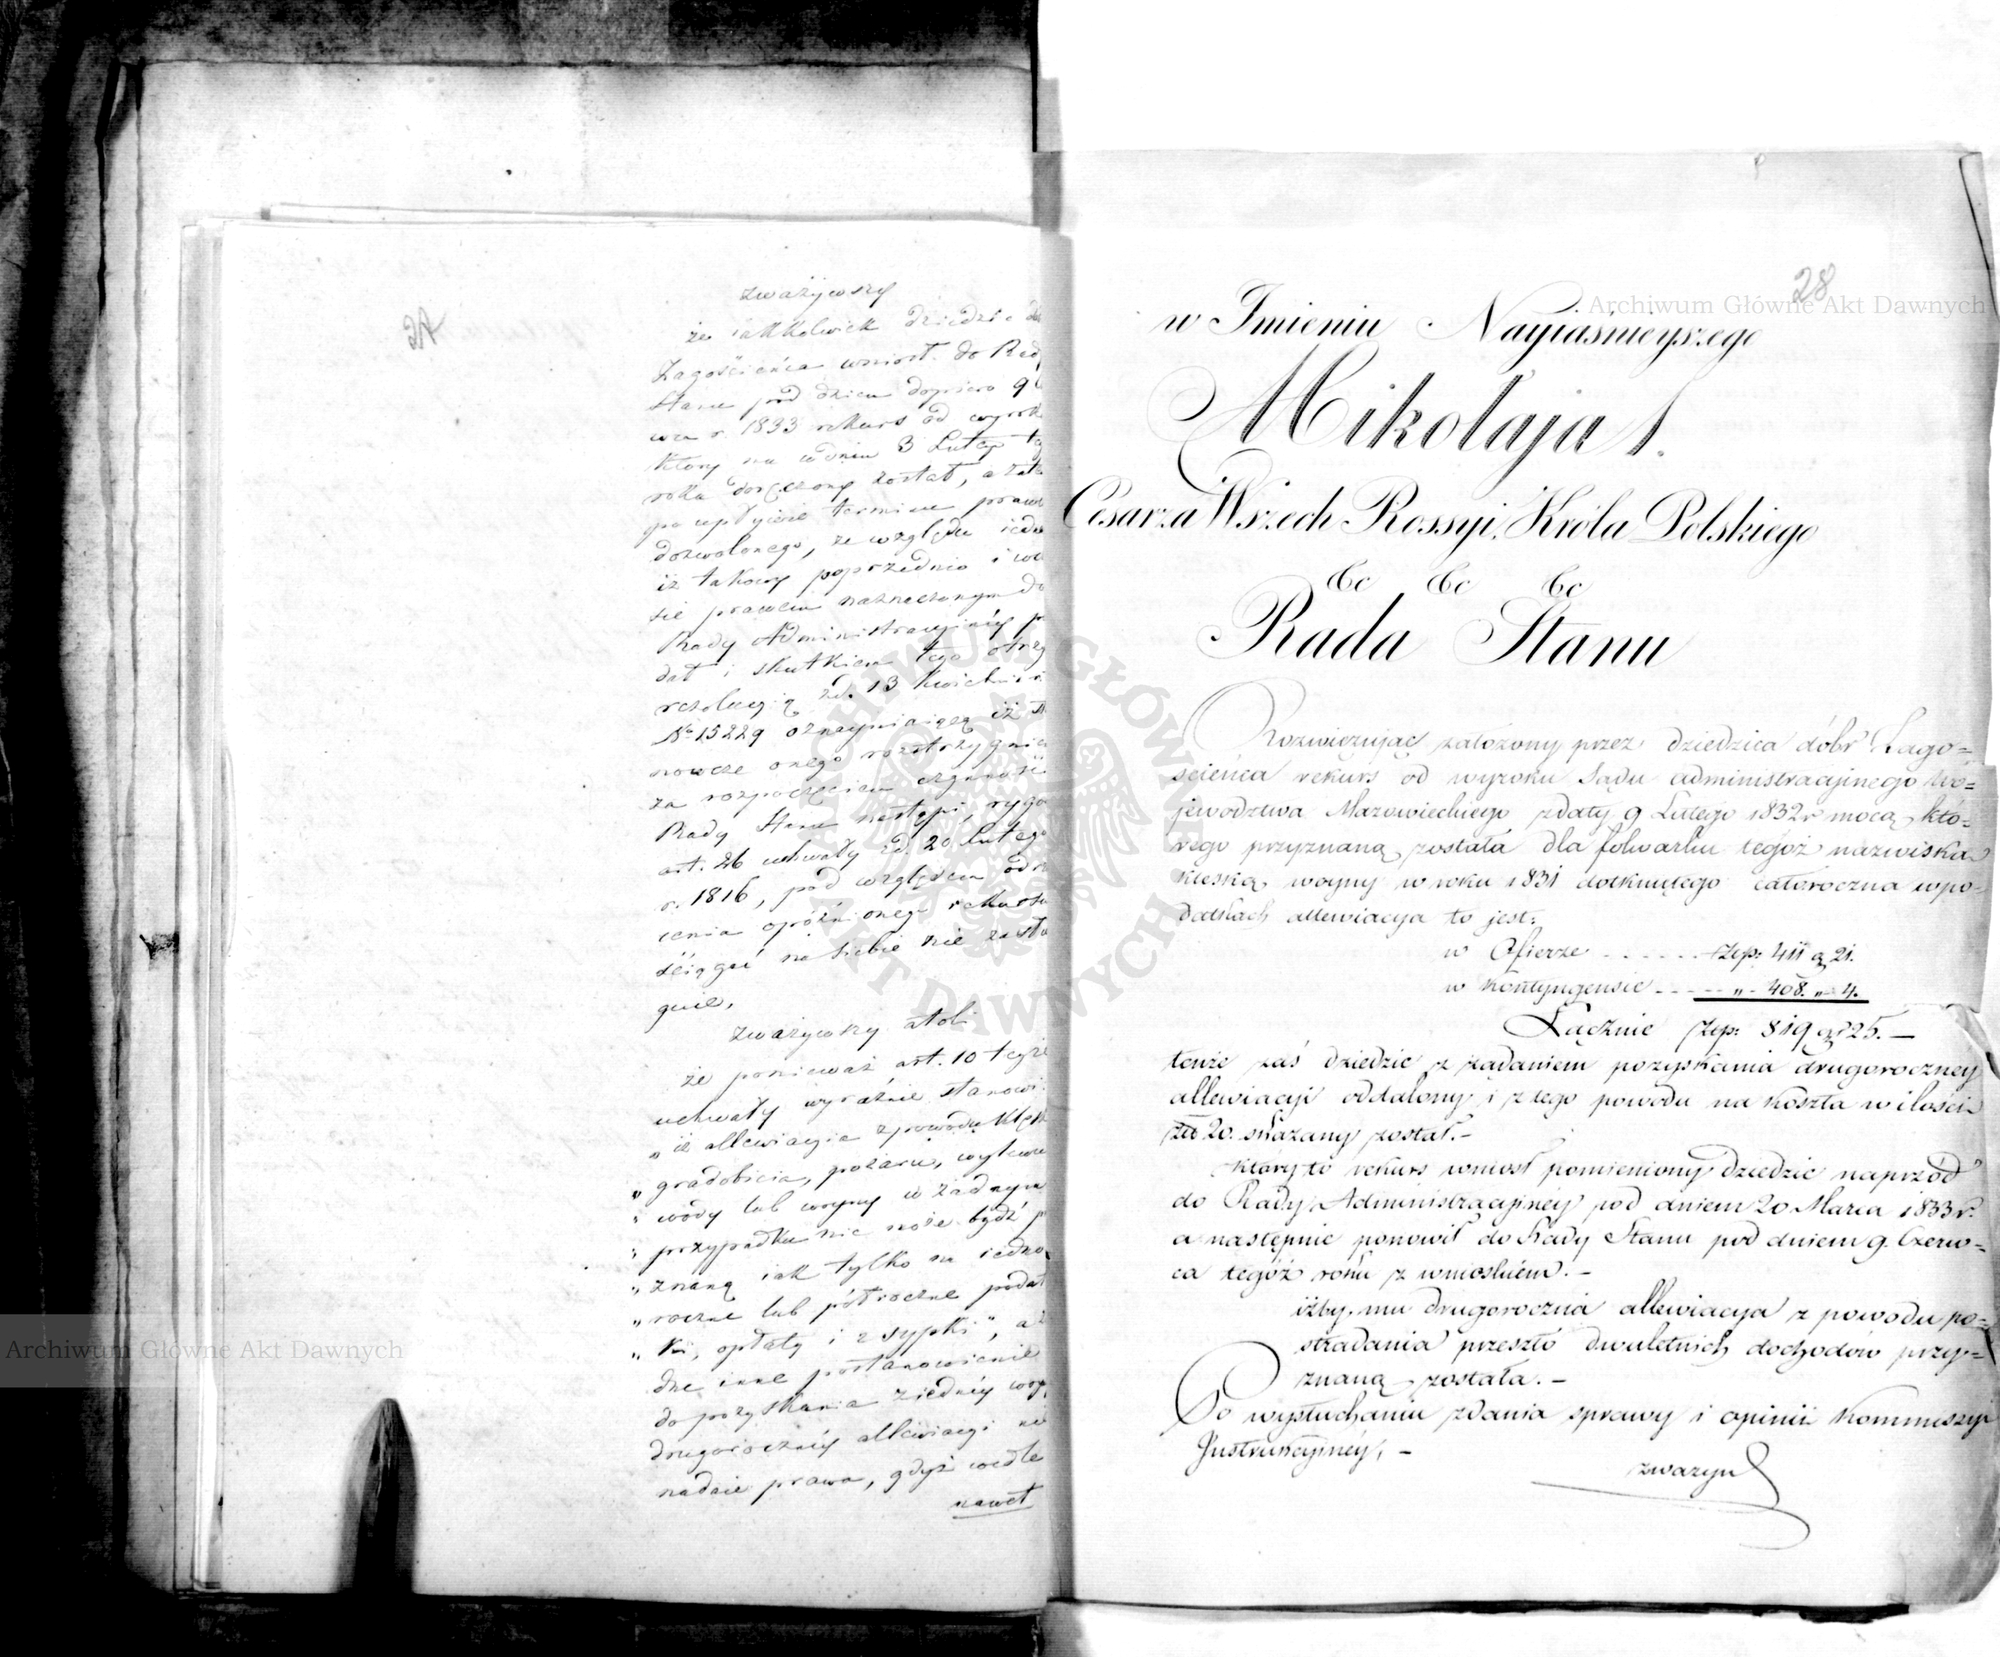 2A
zważywszy
że iakkolwiek dziedzic dó
Zagościeńca wniosł do Rady
Stanu pod dniem dopiero 9 C
wca r. 1833 rekurs od wyrok
który na w dniu 3 Lutego te
roku doręczony został, a zate
po upływie terminu praw
dozwolonego, ze względu iedn
iż takowy poprzednio i we
sie prawem naznaczonym do
Rady Administracyjnéy p
dał i skutkiem tego otrzy
rezolucyią z d. 13 Kwietnia
No 15229 oznaymiaiącą iż st
nowcze onego rozstrzygnie
za rozpoczęciem czynnośc
Rady Stanu nastąpi, rygor
art. 26 uchwały z d. 20 Lutego
r. 1816, pod względem odrzu
cenia opóźnionego rekursu
ściągać na siebie nie zasłu
guie,
Zważywszy atoli
że ponieważ art. 10 teyże
uchwały wyraźnie stanowi
„ iż allewiacyie z powodu klęsk
„ gradobicia, pożaru, wylewu
„ wody lub woyny w żadnym
„ przypadku nie może bydź p
„ znaną iak tylko na iedno
„ roczne lub półroczne podat
„ ki, opłaty i zsypki", a ża
dne inne postanowienie
do pozyskania z iednéy woy
drugorocznéy allewiacyi nie
nadaie prawa, gdyż wedle
nawet
28
w Imieniu Nayiaśnieyszego
Mikołaja I.
Cesarza Wszech Rossyi, Króla Polskiego
&c &c &c
Rada Stanu
Rozwiązując założony przez dziedzica dóbr Zago=
ścieńca rekurs od wyroku Sądu administracyjnego Wo=
jewództwa Mazowieckiego z daty 9 Lutego 1832 r mocą któ=
rego przyznaną została dla folwarku tegóż nazwiska
klęską woyny w roku 1831 dotkniętego całoroczna w po=
datkach allewiacya to jest:
w Ofierze . . . . . . . złp: 411 g 21.
w Kontyngensie - - - - - „ - 408. „ 4.
Łącznie złp: 819 gr 25. —
tenże zaś dziedzic z żądaniem pozyskania drugoroczney
allewiacyi oddalony i z tego powodu na koszta w ilości
złt 20. skazany został. -
który to rekurs wniosł pomieniony dziedzic naprzód
do Rady Administracyjnéy pod dniem 20 Marca 1833 r.
a następnie ponowił do Rady Stanu pod dniem 9. Czerw=
ca tegóż roku z wnioskiem. -
iżby mu drugoroczna allewiacya z powodu po=
stradania przeszło dwuletnich dochodów przy=
znaną została. -
Po wysłuchaniu zdania sprawy i opinii Kommissyi
Instrukcyjnéy, -
zważyw
Archiwum Główne Akt Dawnych
Archiwum Główne Akt Dawnych
ARCHIWUM GŁÓWNE AKT DAWNYCH